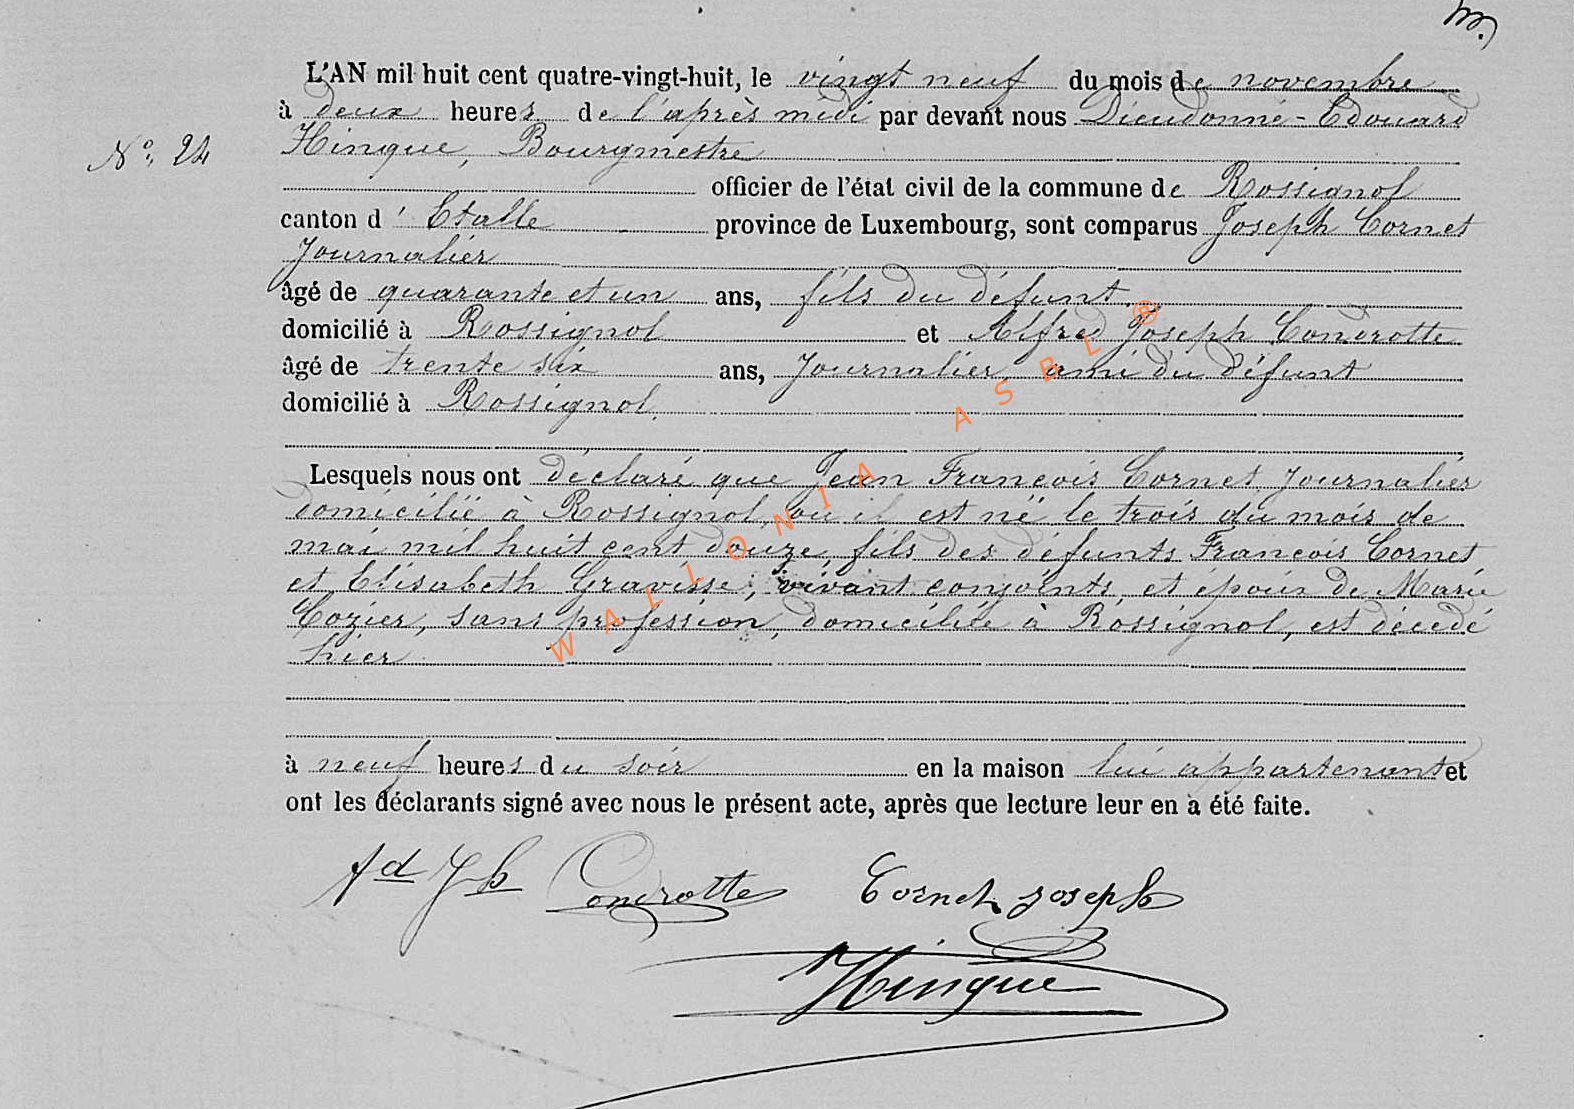 L'AN mil huit cent quatre-vingt-huit, le vingt neuf du mois de novembre
à deux heures de l'après midi par devant nous Dieudonné-Edouard
N° 24
Hinque, Bourgmestre
officier de l'état civil de la commune de Rossignol
canton d'Etalle province de Luxembourg, sont comparus Joseph Cornet
Journalier
âgé de quarante et un ans, fils du défunt
domicilié à Rossignol et Alfred Joseph Condrotte
âgé de trente six ans, Journalier, ami du défunt
domicilié à Rossignol.
Lesquels nous ont déclaré que Jean François Cornet, Journalier
domicilié à Rossignol, où il est né le trois du mois de
mai mil huit cent douze, fils des défunts François Cornet
et Elisabeth Gravisse, vivant conjoints, et époux de Marie
Cozier, sans profession, domiciliée à Rossignol, est décédé
hier
à neuf heures du soir en la maison lui appartenant et
ont les déclarants signé avec nous le présent acte, après que lecture leur en a été faite.
Ad Jh Condrotte Cornet Joseph
Hinque
WALLONIA ASBL ®